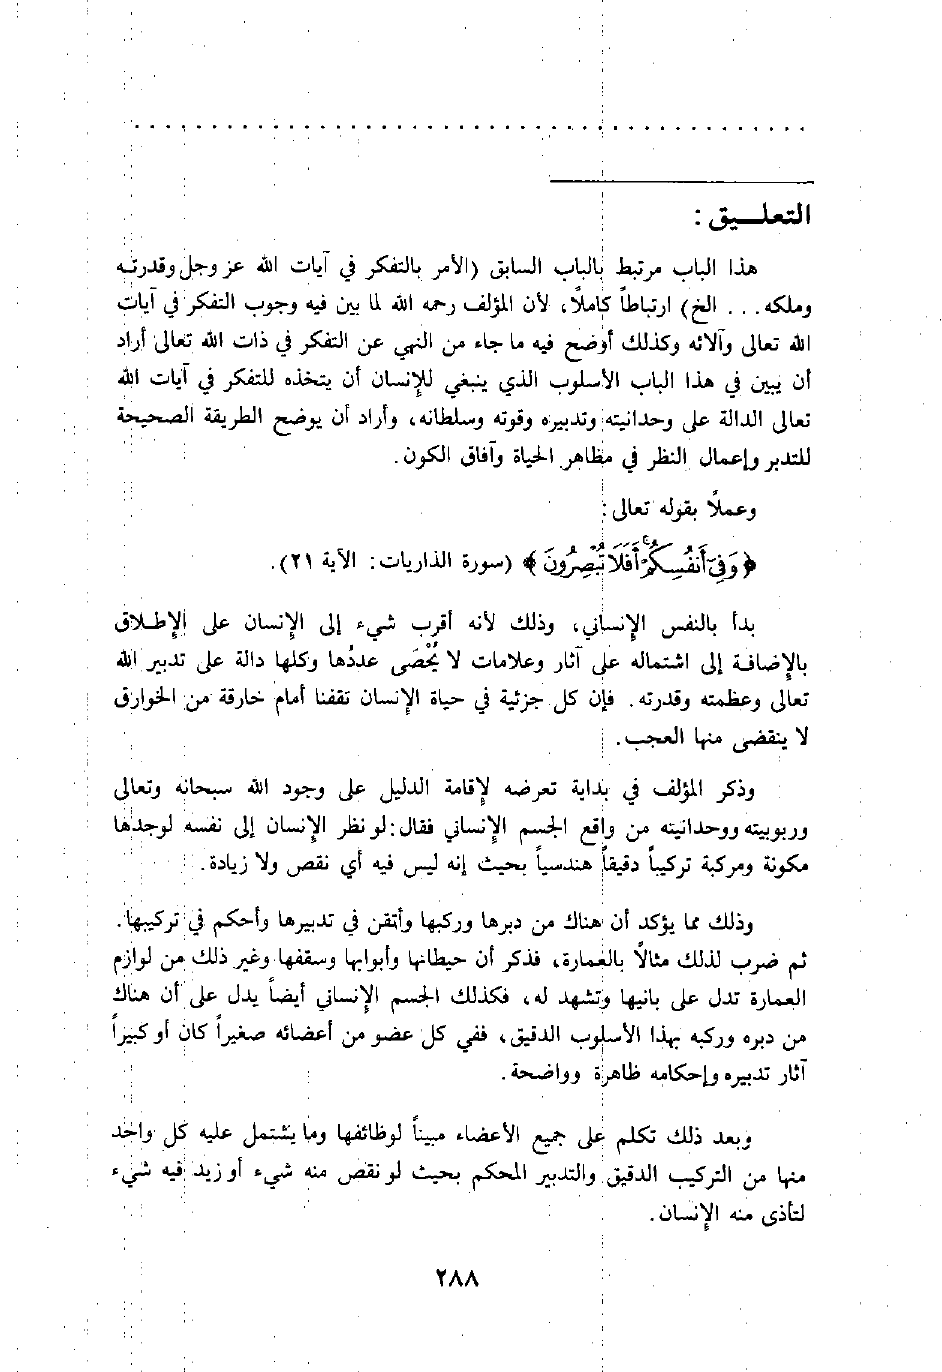 التعلـيق :
هذا الباب مرتبط بالباب السابق (الأمر بالتفكر في آيات الله عز وجل وقدرته
وملكه . . . الخ) ارتباطاً كاملاً، لأن المؤلف رحمه الله لما بين فيه وجوب التفكر في آيات
الله تعالى وآلائه وكذلك أوضح فيه ما جاء من النهي عن التفكر في ذات الله تعالى أراد
أن يبين في هذا الباب الأسلوب الذي ينبغي للإنسان أن يتخذه للتفكر في آيات الله
تعالى الدالة على وحدانيته وتدبيره وقوته وسلطانه، وأراد أن يوضح الطريقة الصحيحة
للتدبر وإعمال النظر في مظاهر الحياة وآفاق الكون.
وعملاً بقوله تعالى:
﴿وَفِىٓ أَنفُسِكُمْ ۚ أَفَلَا تُبْصِرُونَ﴾ (سورة الذاريات: الآية ٢١).
بدأ بالنفس الإنساني، وذلك لأنه أقرب شيء إلى الإنسان على الإطلاق
بالإضافة إلى اشتماله على آثار وعلامات لا يُحْصَى عددُها وكلها دالة على تدبير الله
تعالى وعظمته وقدرته. فإن كل جزئية في حياة الإنسان تقفنا أمام خارقة من الخوارق
لا ينقضى منها العجب.
وذكر المؤلف في بداية تعرضه لإقامة الدليل على وجود الله سبحانه وتعالى
وربوبيته ووحدانيته من واقع الجسم الإنساني فقال: لو نظر الإنسان إلى نفسه لوجدها
مكونة ومركبة تركيباً دقيقاً هندسياً بحيث إنه ليس فيه أي نقص ولا زيادة.
وذلك مما يؤكد أن هناك من دبرها وركبها وأتقن في تدبيرها وأحكم في تركيبها.
ثم ضرب لذلك مثالاً بالعمارة، فذكر أن حيطانها وأبوابها وسقفها وغير ذلك من لوازم
العمارة تدل على بانيها وتشهد له، فكذلك الجسم الإنساني أيضاً يدل على أن هناك
من دبره وركبه بهذا الأسلوب الدقيق، ففي كل عضو من أعضائه صغيراً كان أو كبيراً
آثار تدبيره وإحكامه ظاهرة وواضحة.
وبعد ذلك تكلم على جميع الأعضاء مبيناً لوظائفها وما يشتمل عليه كل واحد
منها من التركيب الدقيق والتدبير المحكم بحيث لو نقص منه شيء أو زيد فيه شيء
لتأذى منه الإنسان.
٢٨٨